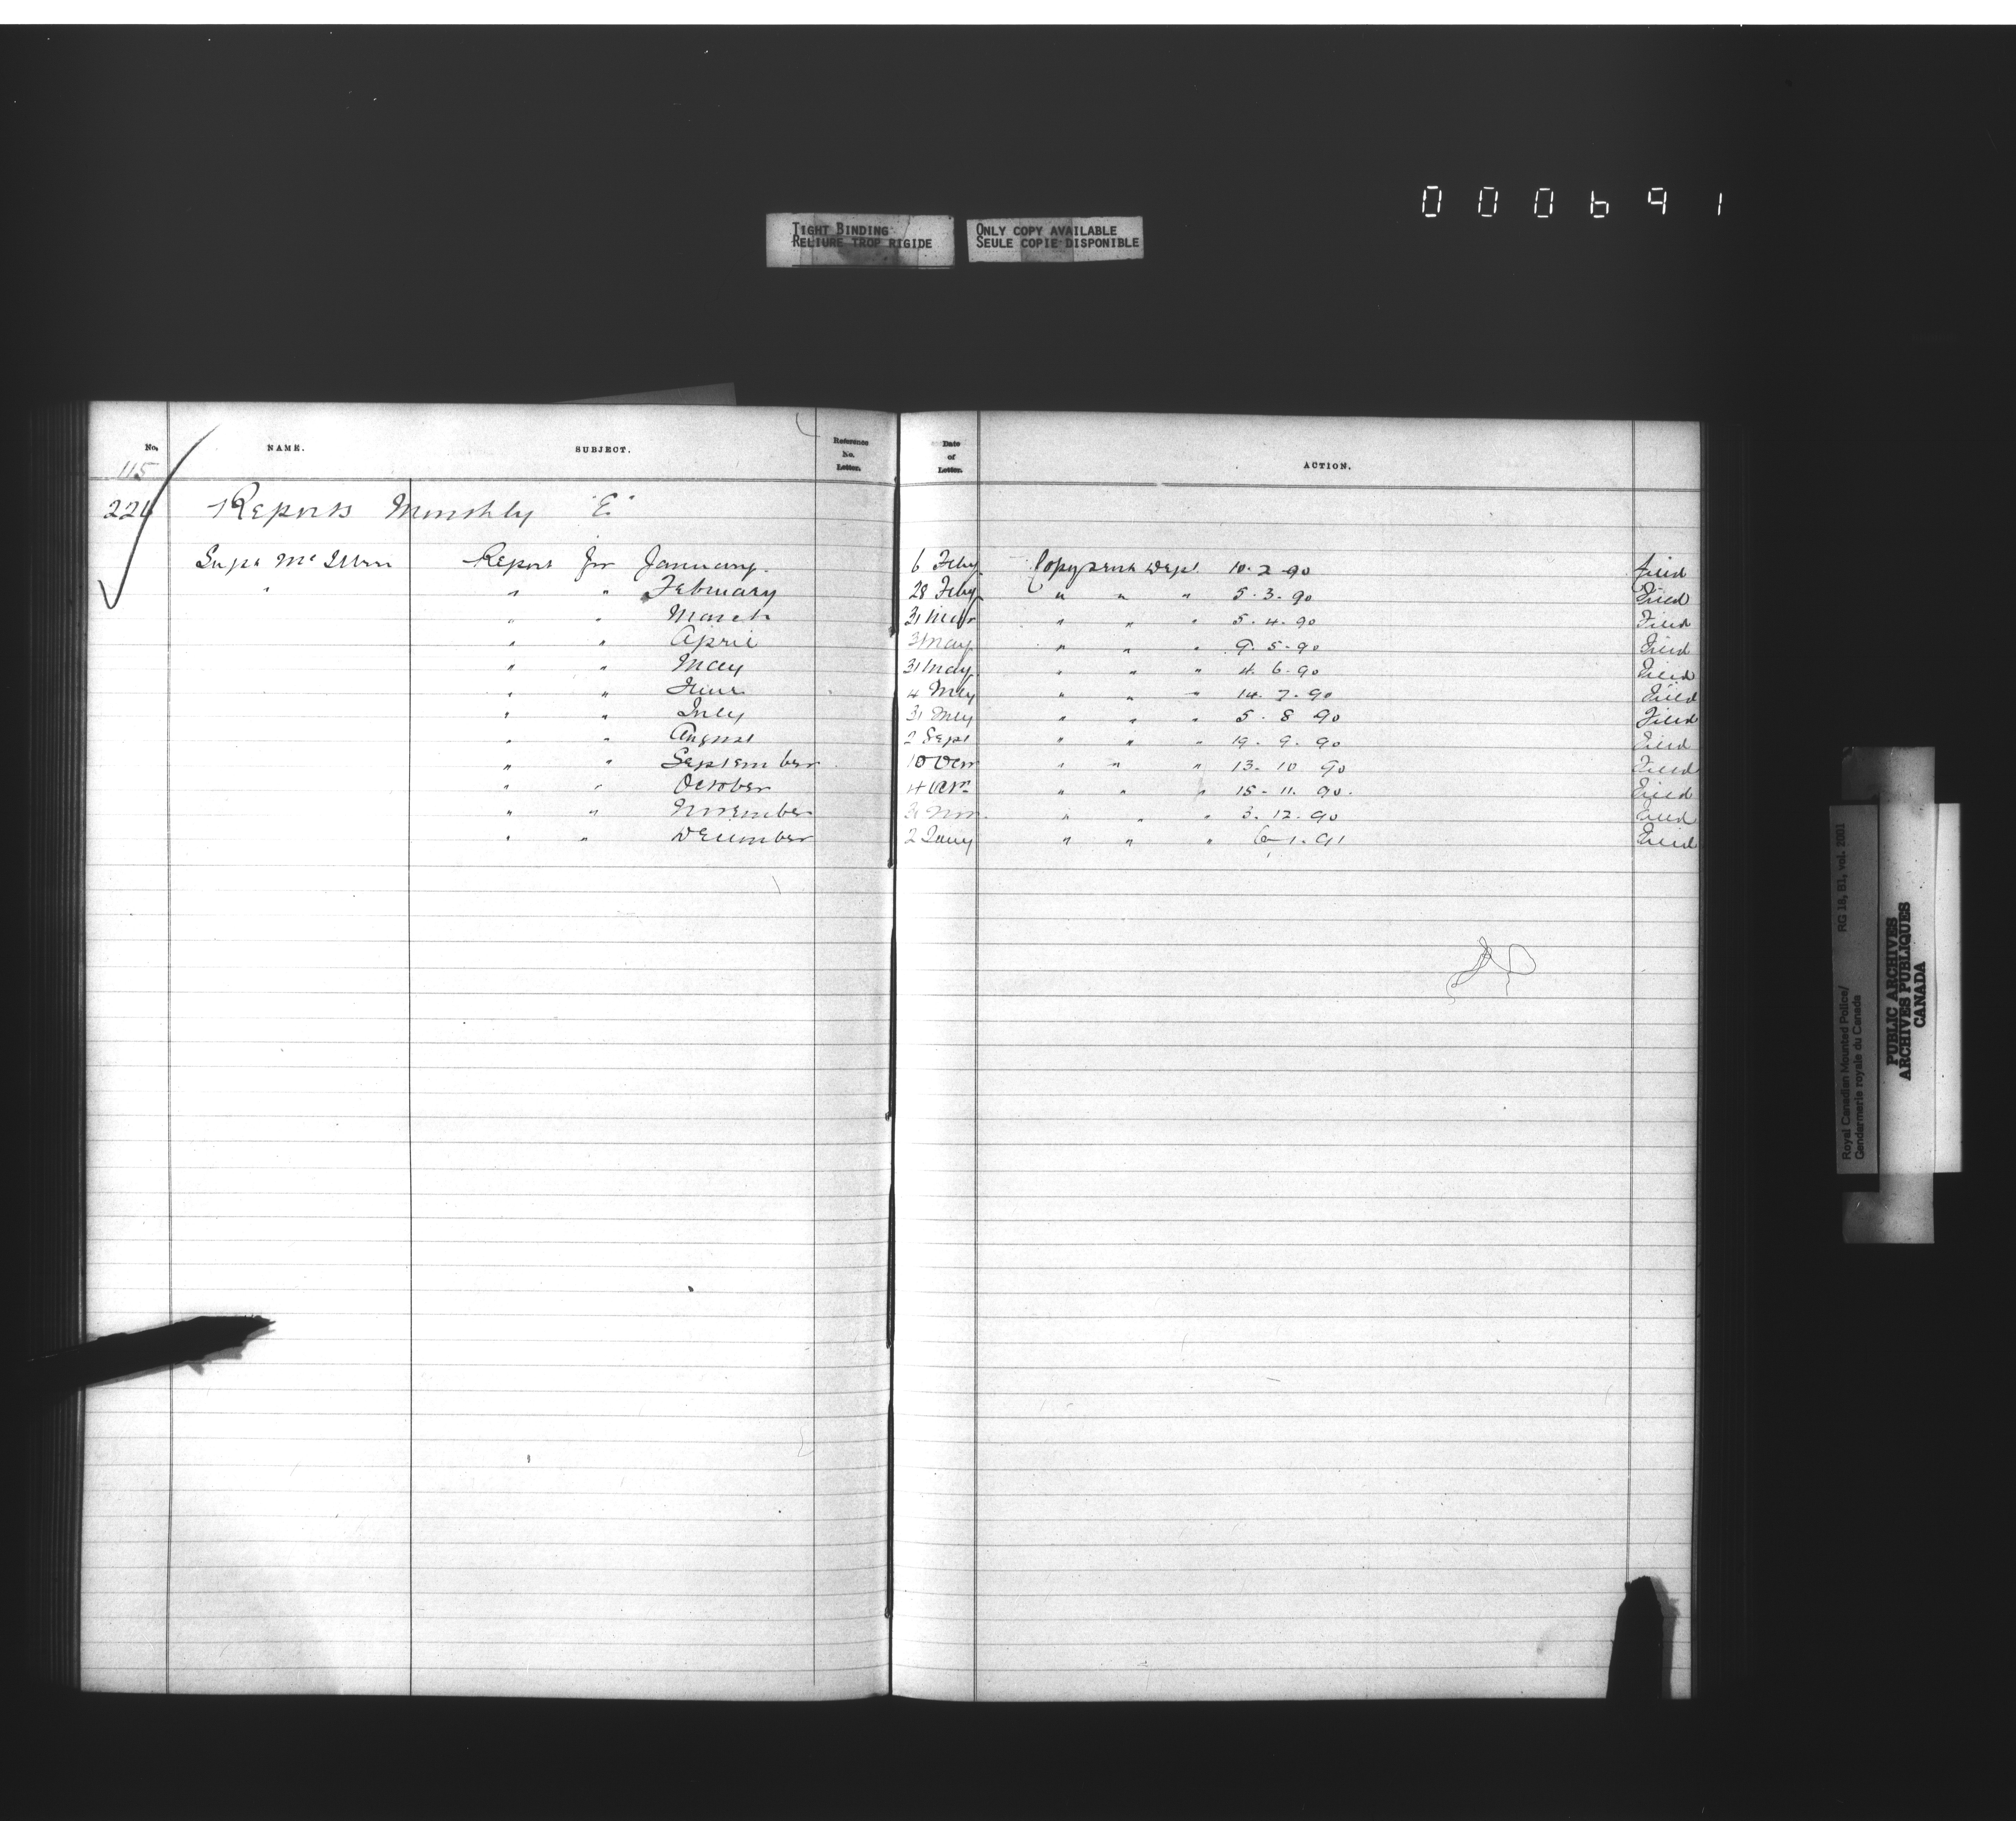 000691
TIGHT BINDING
RELIURE TROP RIGIDE
ONLY COPY AVAILABLE
SEULE COPIE DISPONIBLE
No. NAME. SUBJECT. Reference No. Letter. Date of Letter. ACTION.
115
226 Reports Monthly "E"
Supt Report for January. 6 Feby Copy sent Dept. 10-2-90 filed
" " " February 28 Feby " " " 5.3.90 Filed
" " March 31 Mar " " " 5.4.90 Filed
" " April 3 May " " " 9.5.90 Filed
" " May 31 May " " " 4.6.90 Filed
" " June 4 " " " 14.7.90 Filed
" " July 31 " " " 5.8.90 Filed
" " August 2 Sept " " " 19.9.90 Filed
" " September " " " 13-10 90 Filed
" " October 4 " " " 15-11.90. Filed
" " November " " " 3.12.90 Filed
" " December 2 Jany " " " 6-1.91 Filed
Royal Canadian Mounted Police/
Gendarmerie royale du Canada
RG 18, B1, vol. 2001
PUBLIC ARCHIVES
ARCHIVES PUBLIQUES
CANADA